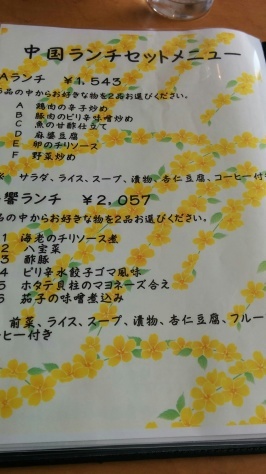 中国ランチセットメニュー
Aランチ ¥1,543
品の中からお好きな物を2品お選びください。
A 鶏肉の辛子炒め
B 豚肉のピリ辛味噌炒め
C 魚の甘酢仕立て
D 麻婆豆腐
E 卵のチリソース
F 野菜炒め
サラダ、ライス、スープ、漬物、杏仁豆腐、コーヒー付き
響ランチ ¥2,057
品の中からお好きな物を2品お選びください。
1 海老のチリソース煮
2 八宝菜
3 酢豚
4 ピリ辛水餃子ゴマ風味
5 ホタテ貝柱のマヨネーズ合え
6 茄子の味噌煮込み
前菜、ライス、スープ、漬物、杏仁豆腐、フルー
ヒー付き